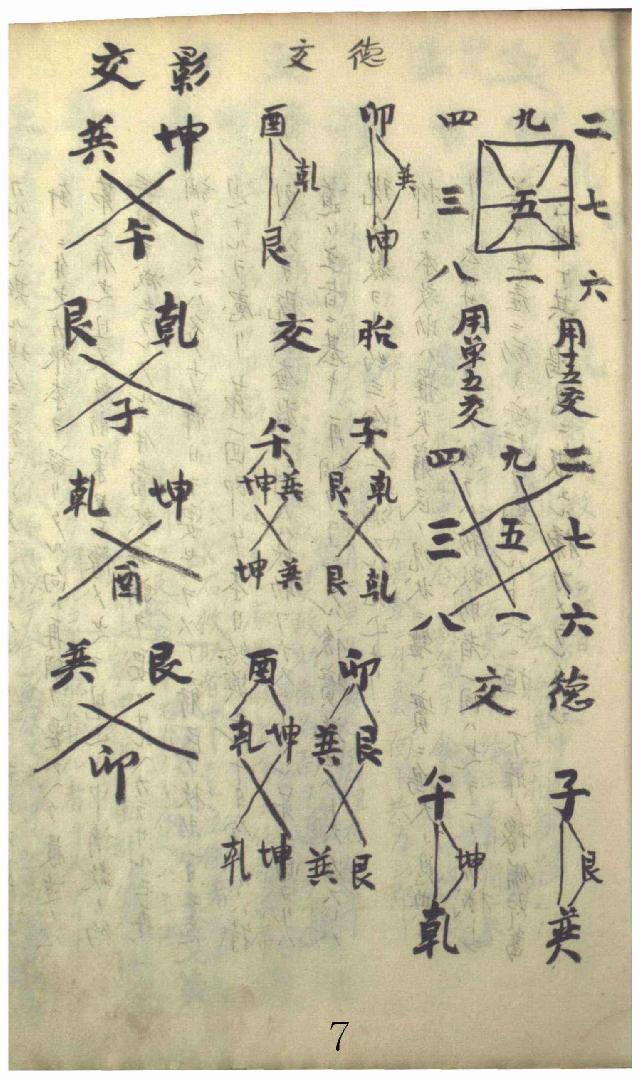 二 九 四
七 五 三
六 一 八
用五交
用單五交
二 九 四
七 五 三
六 一 八
德交
子
艮
巽
午
坤
乾
德交
卯
巽
坤
酉
乾
艮
胎交
子
乾 艮
乾 艮
午
巽 坤
巽 坤
卯
艮 巽
艮 巽
酉
坤 乾
坤 乾
影交
坤 巽
午
乾 艮
子
坤 乾
酉
艮 巽
卯
7